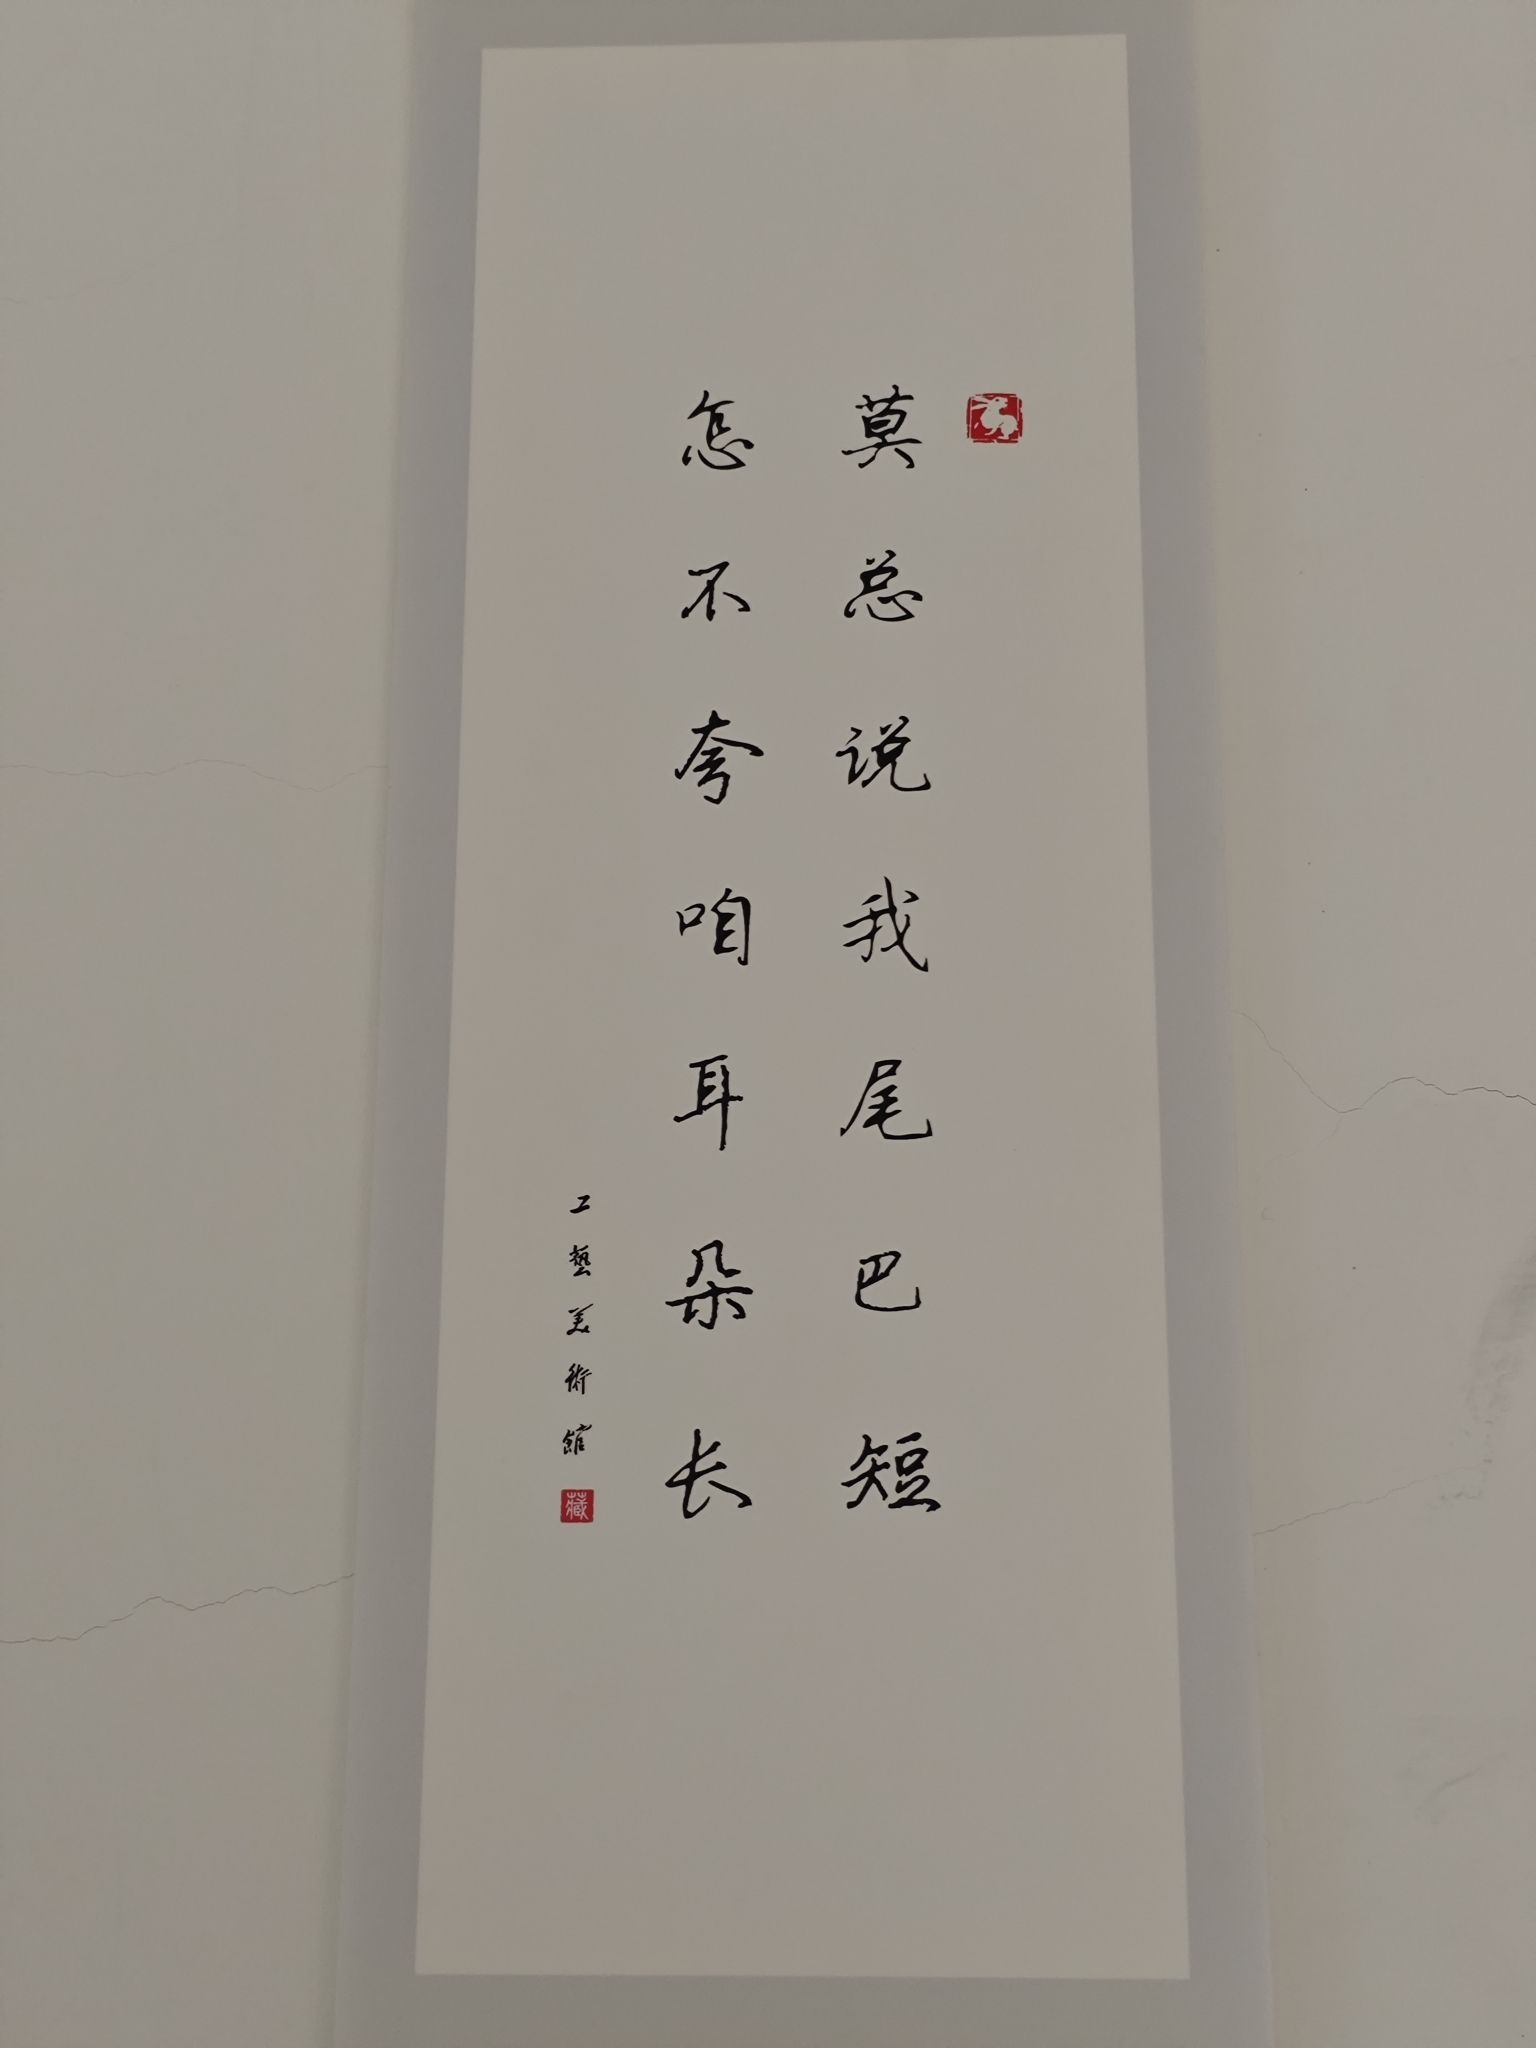 莫总说我尾巴短
怎不夸咱耳朵长
工藝美術館
藏